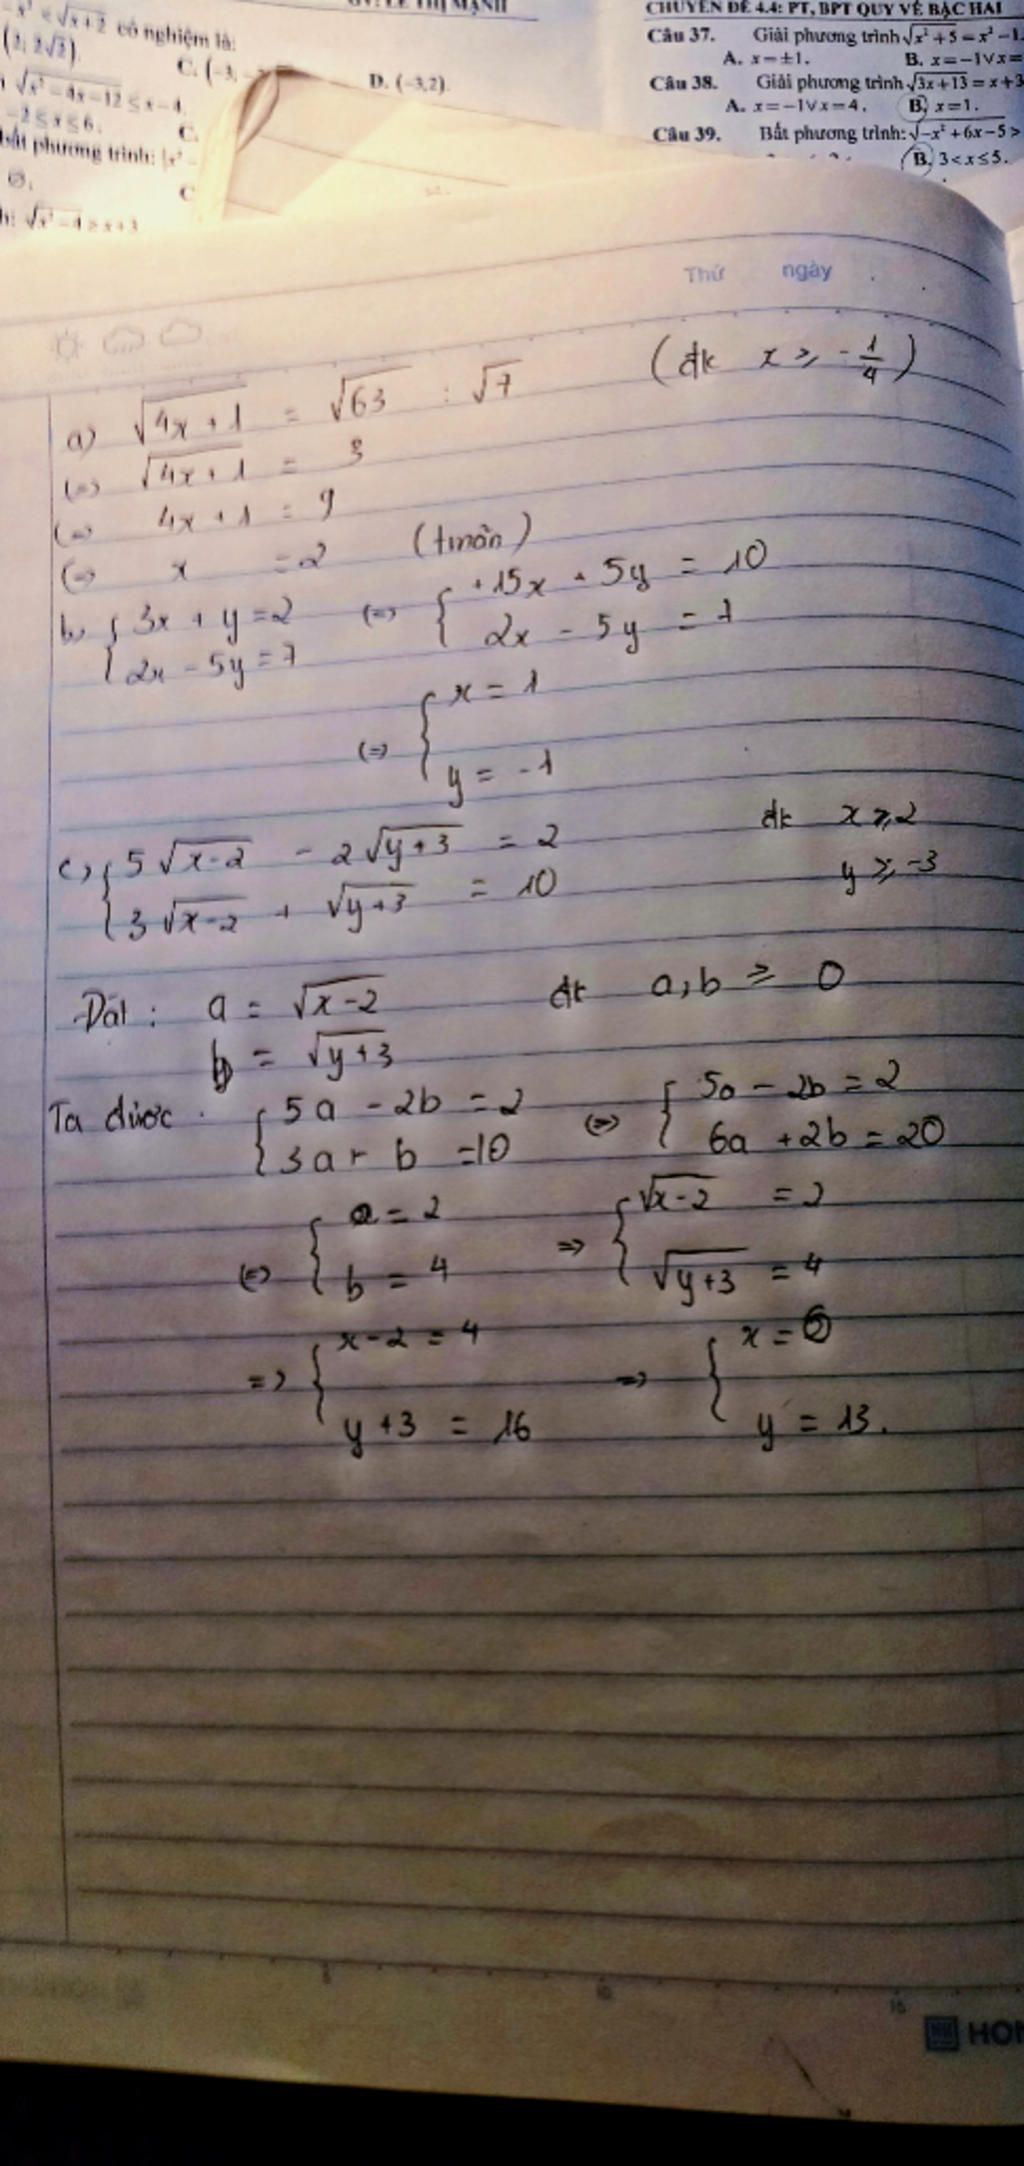 √x+2 có nghiệm là:
(2; 2√2).
C. (-3;
D. (-3,2).
√x²-4x-12 ≤ x-4.
-2≤x≤6.
C.
bất phương trình:
C
√x²-4 ≥ x+3
GV: LÊ THỊ MẠNH
CHUYÊN ĐỀ 4.4: PT, BPT QUY VỀ BẬC HAI
Câu 37. Giải phương trình √x²+5 = x²-1.
A. x=±1. B. x=-1∨x=
Câu 38. Giải phương trình √3x+13 = x+3
A. x=-1∨x=4. B. x=1.
Câu 39. Bất phương trình: √-x²+6x-5 >
B. 3<x≤5.
Thứ ngày
a) √4x+1 = √63 : √7 (đk x ≥ -1/4)
(=) √4x+1 = 3
(=) 4x+1 = 9
(=) x = 2 (tmãn)
b, { 3x + y = 2 (=) { +15x + 5y = 10
{ 2x - 5y = 7 { 2x - 5y = 7
(=) { x = 1
{ y = -1
c, { 5√x-2 - 2√y+3 = 2 đk x ≥ 2
{ 3√x-2 + √y+3 = 10 y ≥ -3
Đặt: a = √x-2 đk a,b ≥ 0
b = √y+3
Ta được. { 5a - 2b = 2 (=) { 5a - 2b = 2
{ 3a + b = 10 { 6a + 2b = 20
(=) { a = 2 => { √x-2 = 2
{ b = 4 { √y+3 = 4
=> { x-2 = 4 => { x = 6
{ y+3 = 16 { y = 13.
5 10 15
HON